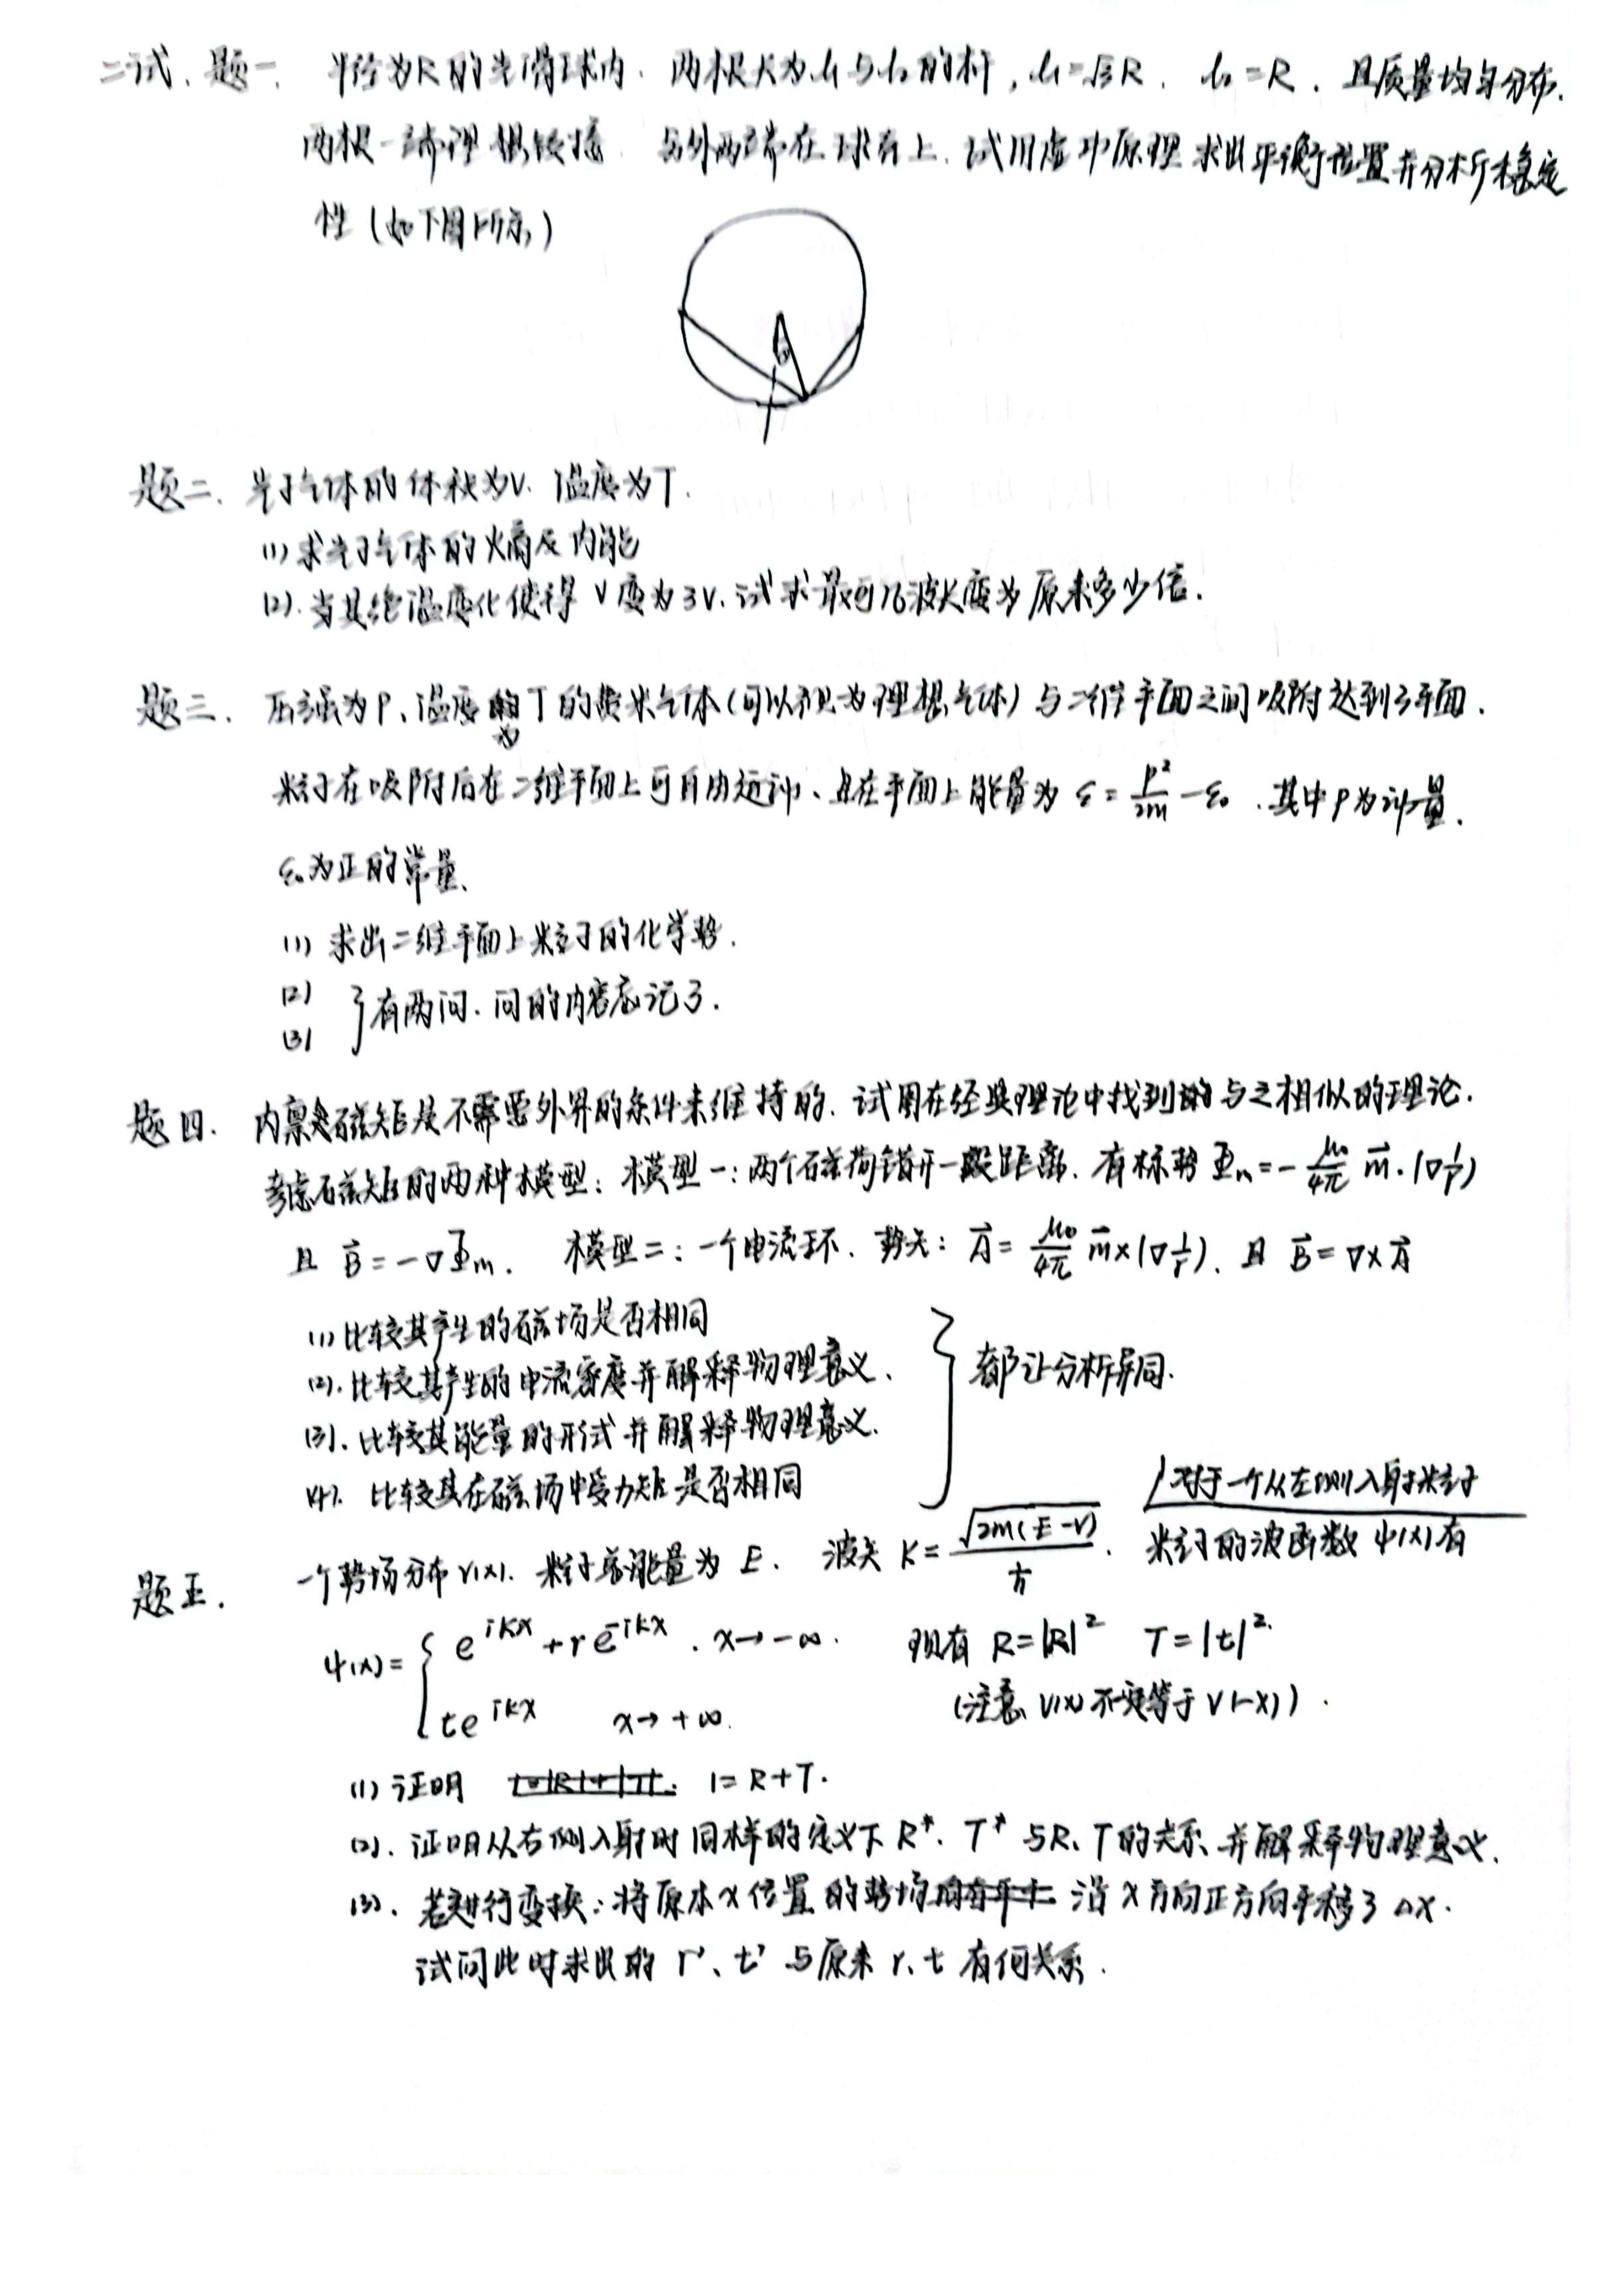 二试. 题一. 半径为R的光滑球内. 两根长为l₁与l₂的杆, l₁=√3R. l₂=R. 且质量均匀分布.
两根一端理想铰接 另外两端在球面上. 试用虚功原理求出平衡位置并分析稳定
性 (如下图所示)
θ
题二. 光子气体的体积为V. 温度为T.
(1) 求光子气体的熵及内能
(2). 当其绝热变化使得V变为3V. 试求最可几波长变为原来多少倍.
题三. 压强为P、温度为T的气体(可以视为理想气体)与二维平面之间吸附达到了平衡.
粒子在吸附后在二维平面上可自由运动、且在平面上能量为 ε = p²/2m - ε₀ . 其中p为动量.
ε₀为正的常量.
(1) 求出二维平面上粒子的化学势.
(2)
(3) } 有两问. 问的内容忘记了.
题四. 内禀磁矩是不需要外界的条件来维持的. 试图在经典理论中找到与之相似的理论.
考虑磁矩的两种模型: 模型一: 两个磁荷错开一段距离. 有标势 Φm = - μ₀/4π m⃗·(∇1/r)
且 B⃗ = -∇Φm. 模型二: 一个电流环. 势矢: A⃗ = μ₀/4π m⃗×(∇1/r). 且 B⃗ = ∇×A⃗
(1) 比较其产生的磁场是否相同
(2). 比较其产生的电流密度并解释物理意义.
(3). 比较其能量的形式并解释物理意义.
(4). 比较其在磁场中受力矩是否相同
} 都让分析异同.
题五. 一个势场分布V(x). 粒子总能量为E. 波矢 K = √2m(E-V)/ħ. 对于一个从左侧入射粒子
粒子的波函数 ψ(x)有
ψ(x) = { e^{ikx} + re^{-ikx} . x→-∞. 现有 R=|R|² T=|t|².
te^{ikx} x→+∞. (注意 V(x)不一定等于V(-x)).
(1) 证明 1=R+T.
(2). 证明从右侧入射时同样的定义下 R*. T* 与R、T的关系, 并解释物理意义.
(3). 若进行变换: 将原本x位置的势场沿x方向正方向平移了Δx.
试问此时求出的 r'、t' 与原来 r、t 有何关系.